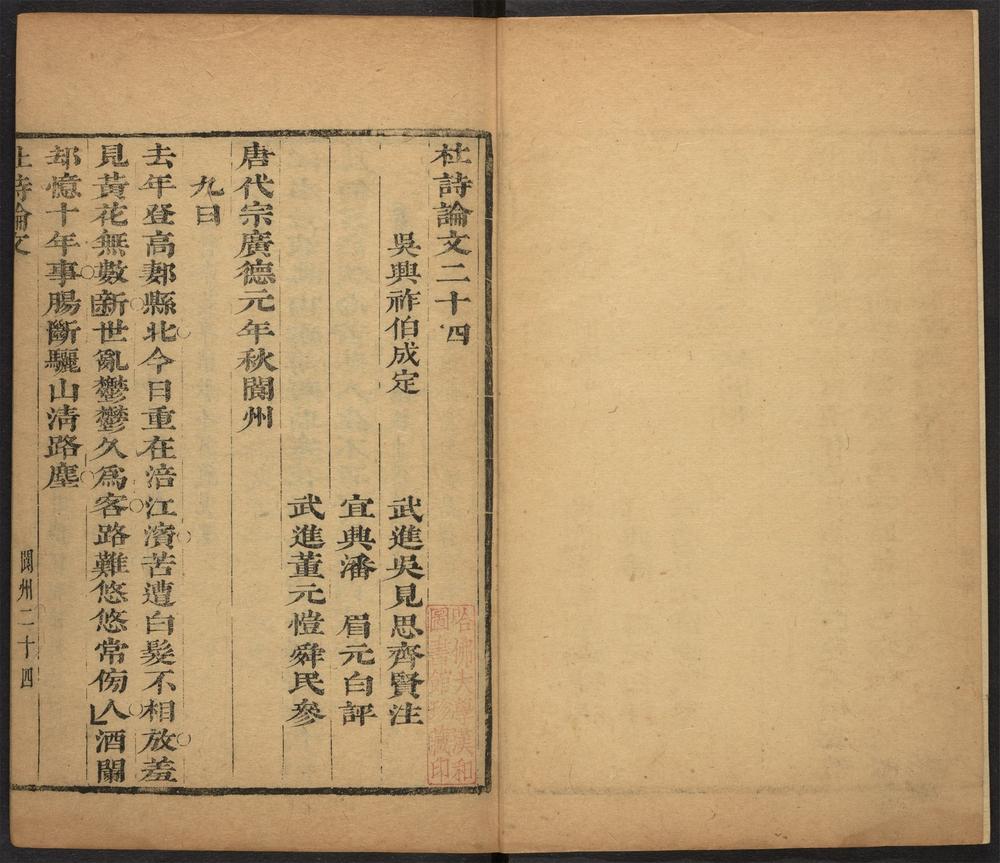 杜詩論文二十四
吳興祚伯成定
武進吳見思齊賢注
宜興潘　眉元白評
武進董元愷舜民參
唐代宗廣德元年秋閬州
九日
去年登高郪縣北今日重在涪江濱苦遭白髮不相放羞
見黃花無數新世亂鬱鬱久為客路難悠悠常傍人酒闌
却憶十年事腸斷驪山清路塵
杜詩論文
閬州二十四
哈佛大學漢和
圖書館珍藏印